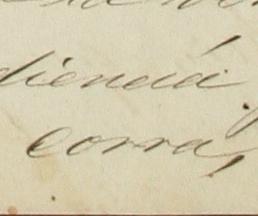 diencia
corra,